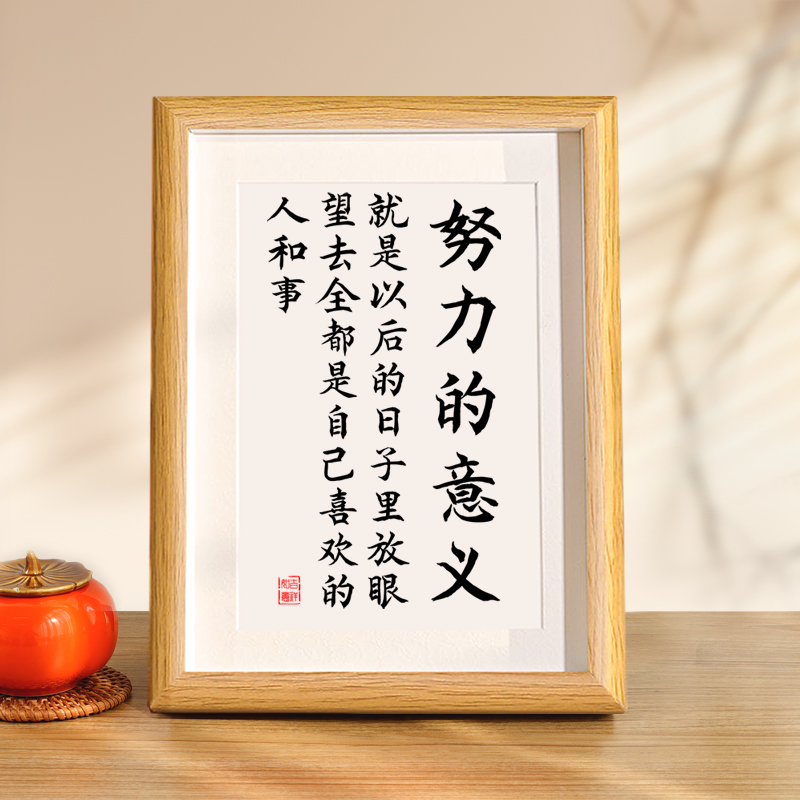 努力的意义
就是以后的日子里放眼
望去全都是自己喜欢的
人和事
吉祥
如意